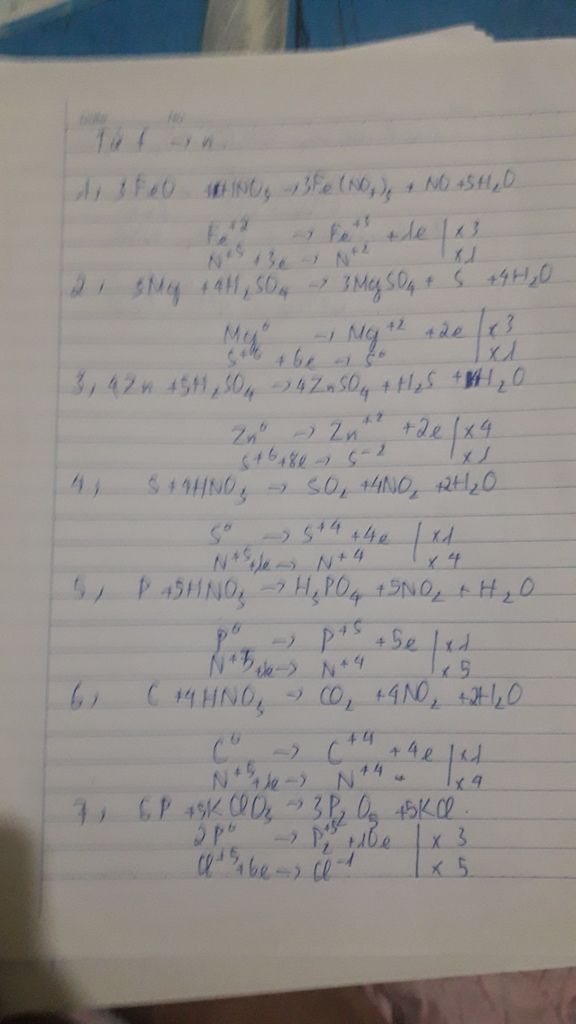 1, 3FeO HNO3 → 3Fe(NO3)3 + NO + 5H2O
Fe+2 → Fe+3 + 1e | x 3
N+5 + 3e → N+2 | x 1
2, 3Mg + 4H2SO4 → 3MgSO4 + S + 4H2O
Mg0 → Mg+2 + 2e | x 3
S+6 + 6e → S0 | x 1
3, 4Zn + 5H2SO4 → 4ZnSO4 + H2S + 4H2O
Zn0 → Zn+2 + 2e | x 4
S+6 + 8e → S-2 | x 1
4, S + 4HNO3 → SO2 + 4NO2 + 2H2O
S0 → S+4 + 4e | x 1
N+5 + 1e → N+4 | x 4
5, P + 5HNO3 → H3PO4 + 5NO2 + H2O
P0 → P+5 + 5e | x 1
N+5 + 1e → N+4 | x 5
6, C + 4HNO3 → CO2 + 4NO2 + 2H2O
C0 → C+4 + 4e | x 1
N+5 + 1e → N+4 | x 4
7, 6P + 5KClO3 → 3P2O5 + 5KCl.
2P0 → P2+5 + 10e | x 3
Cl+5 + 6e → Cl-1 | x 5